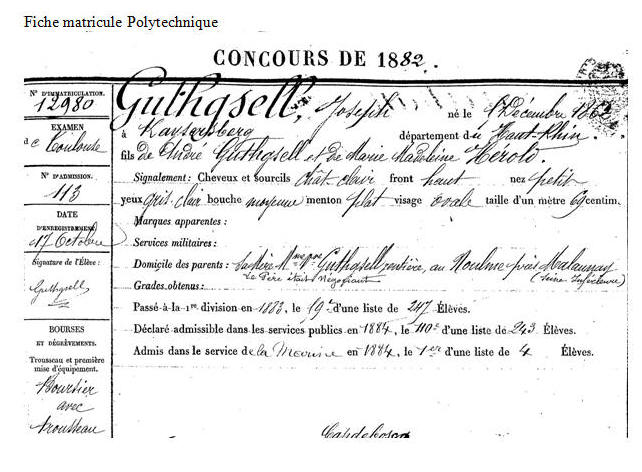 Fiche matricule Polytechnique
CONCOURS DE 1882.
N° D'IMMATRICULATION.
12980
EXAMEN
de Toulouse
N° D'ADMISSION.
113
DATE
D'ENREGISTREMENT
17 Octobre
Signature de l'Élève :
Guthgsell
BOURSES
ET DÉGRÈVEMENTS.
Trousseau et première
mise d'équipement.
Boursier
avec
trousseau
Guthgsell, Joseph né le 1 Décembre 1862
à Kaysersberg département du Haut-Rhin.
fils de André Guthgsell et de Marie Madeleine Hérold.
Signalement : Cheveux et sourcils chât. clair front haut nez petit
yeux gris clair bouche moyenne menton plat visage ovale taille d'un mètre 69 centim.
Marques apparentes :
Services militaires :
Domicile des parents : La Mère Mme Vve Guthgsell rentière, au Houlme près Malaunay
Le Père était négociant (Seine Inférieure)
Grades obtenus :
Passé à la 1re division en 1883, le 19e d'une liste de 247 Élèves.
Déclaré admissible dans les services publics en 1884, le 110e d'une liste de 243 Élèves.
Admis dans le service de la Marine en 1884, le 1er d'une liste de 4 Élèves.